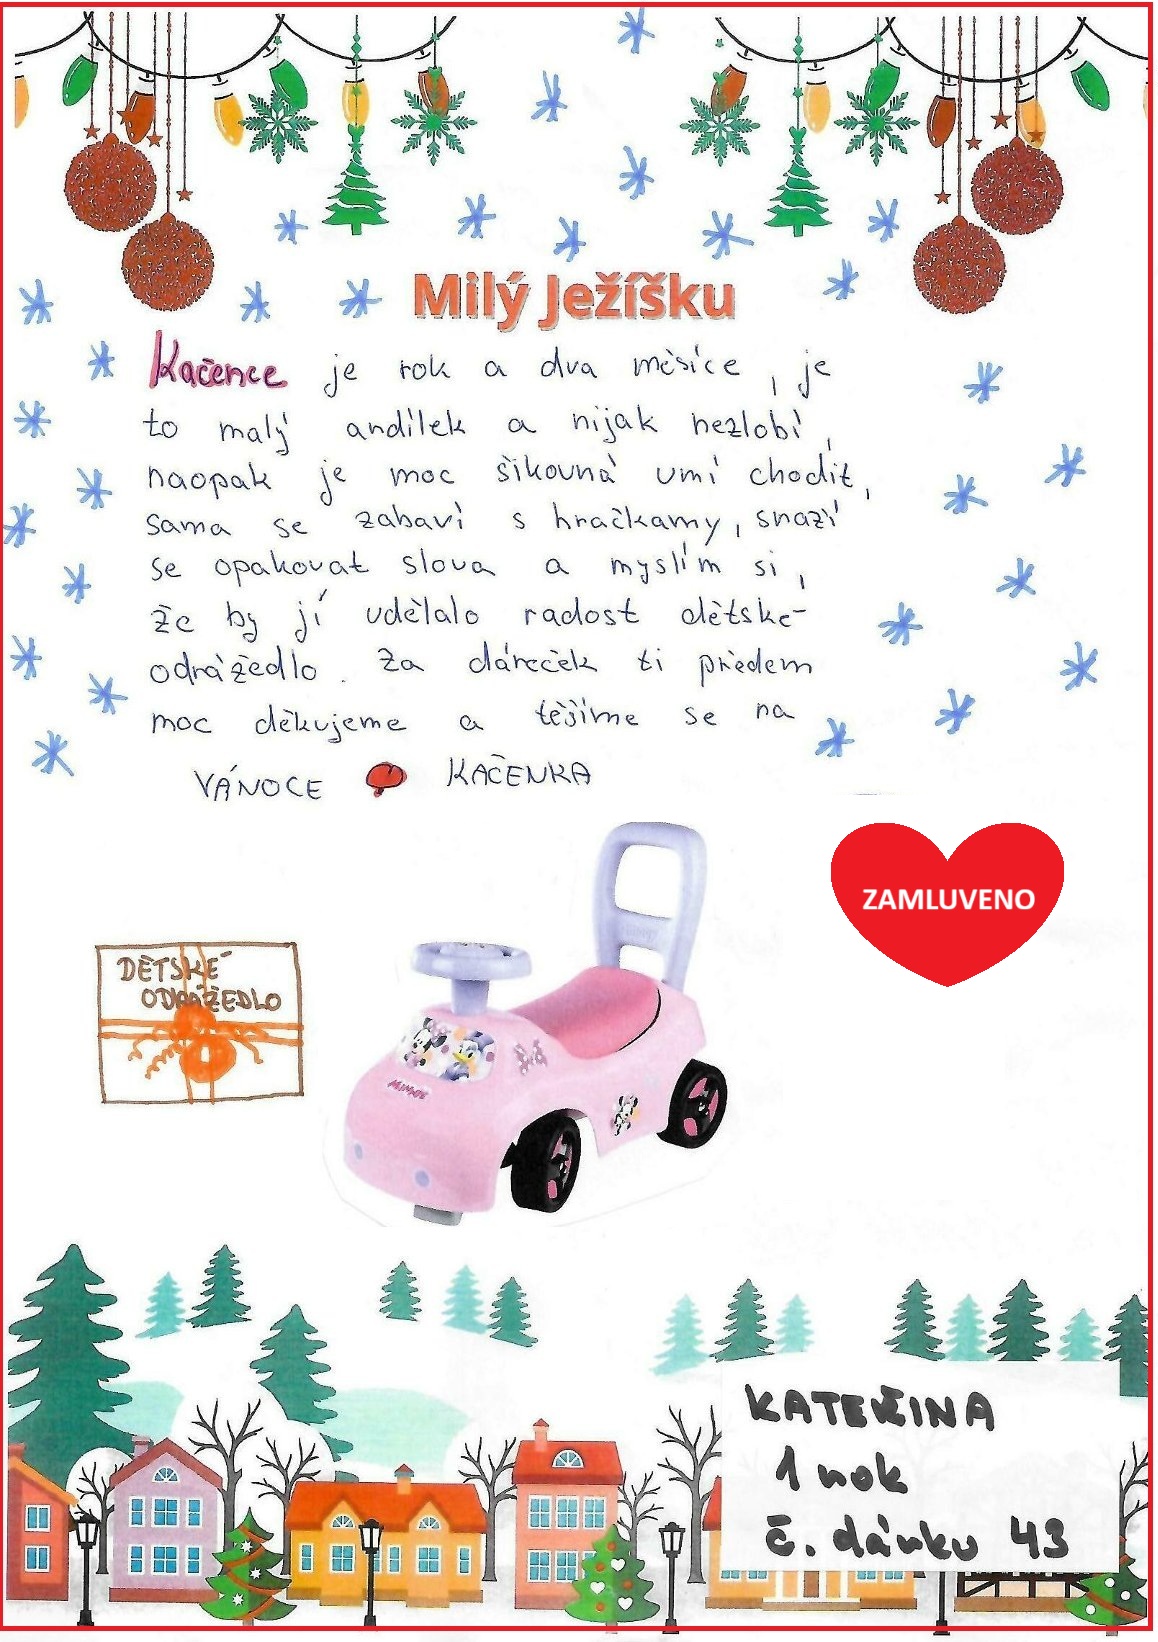 Milý Ježíšku
Kačence je rok a dva měsíce, je
to malý andílek a nijak nezlobí,
naopak je moc šikovná umí chodit,
sama se zabaví s hračkamy, snaží
se opakovat slova a myslím si,
že by jí udělalo radost dětské
odrážedlo. Za dáreček ti předem
moc děkujeme a těšíme se na
VÁNOCE KAČENKA
ZAMLUVENO
DĚTSKÉ
ODRÁŽEDLO
MINNIE
KATEŘINA
1 rok
č. dárku 43